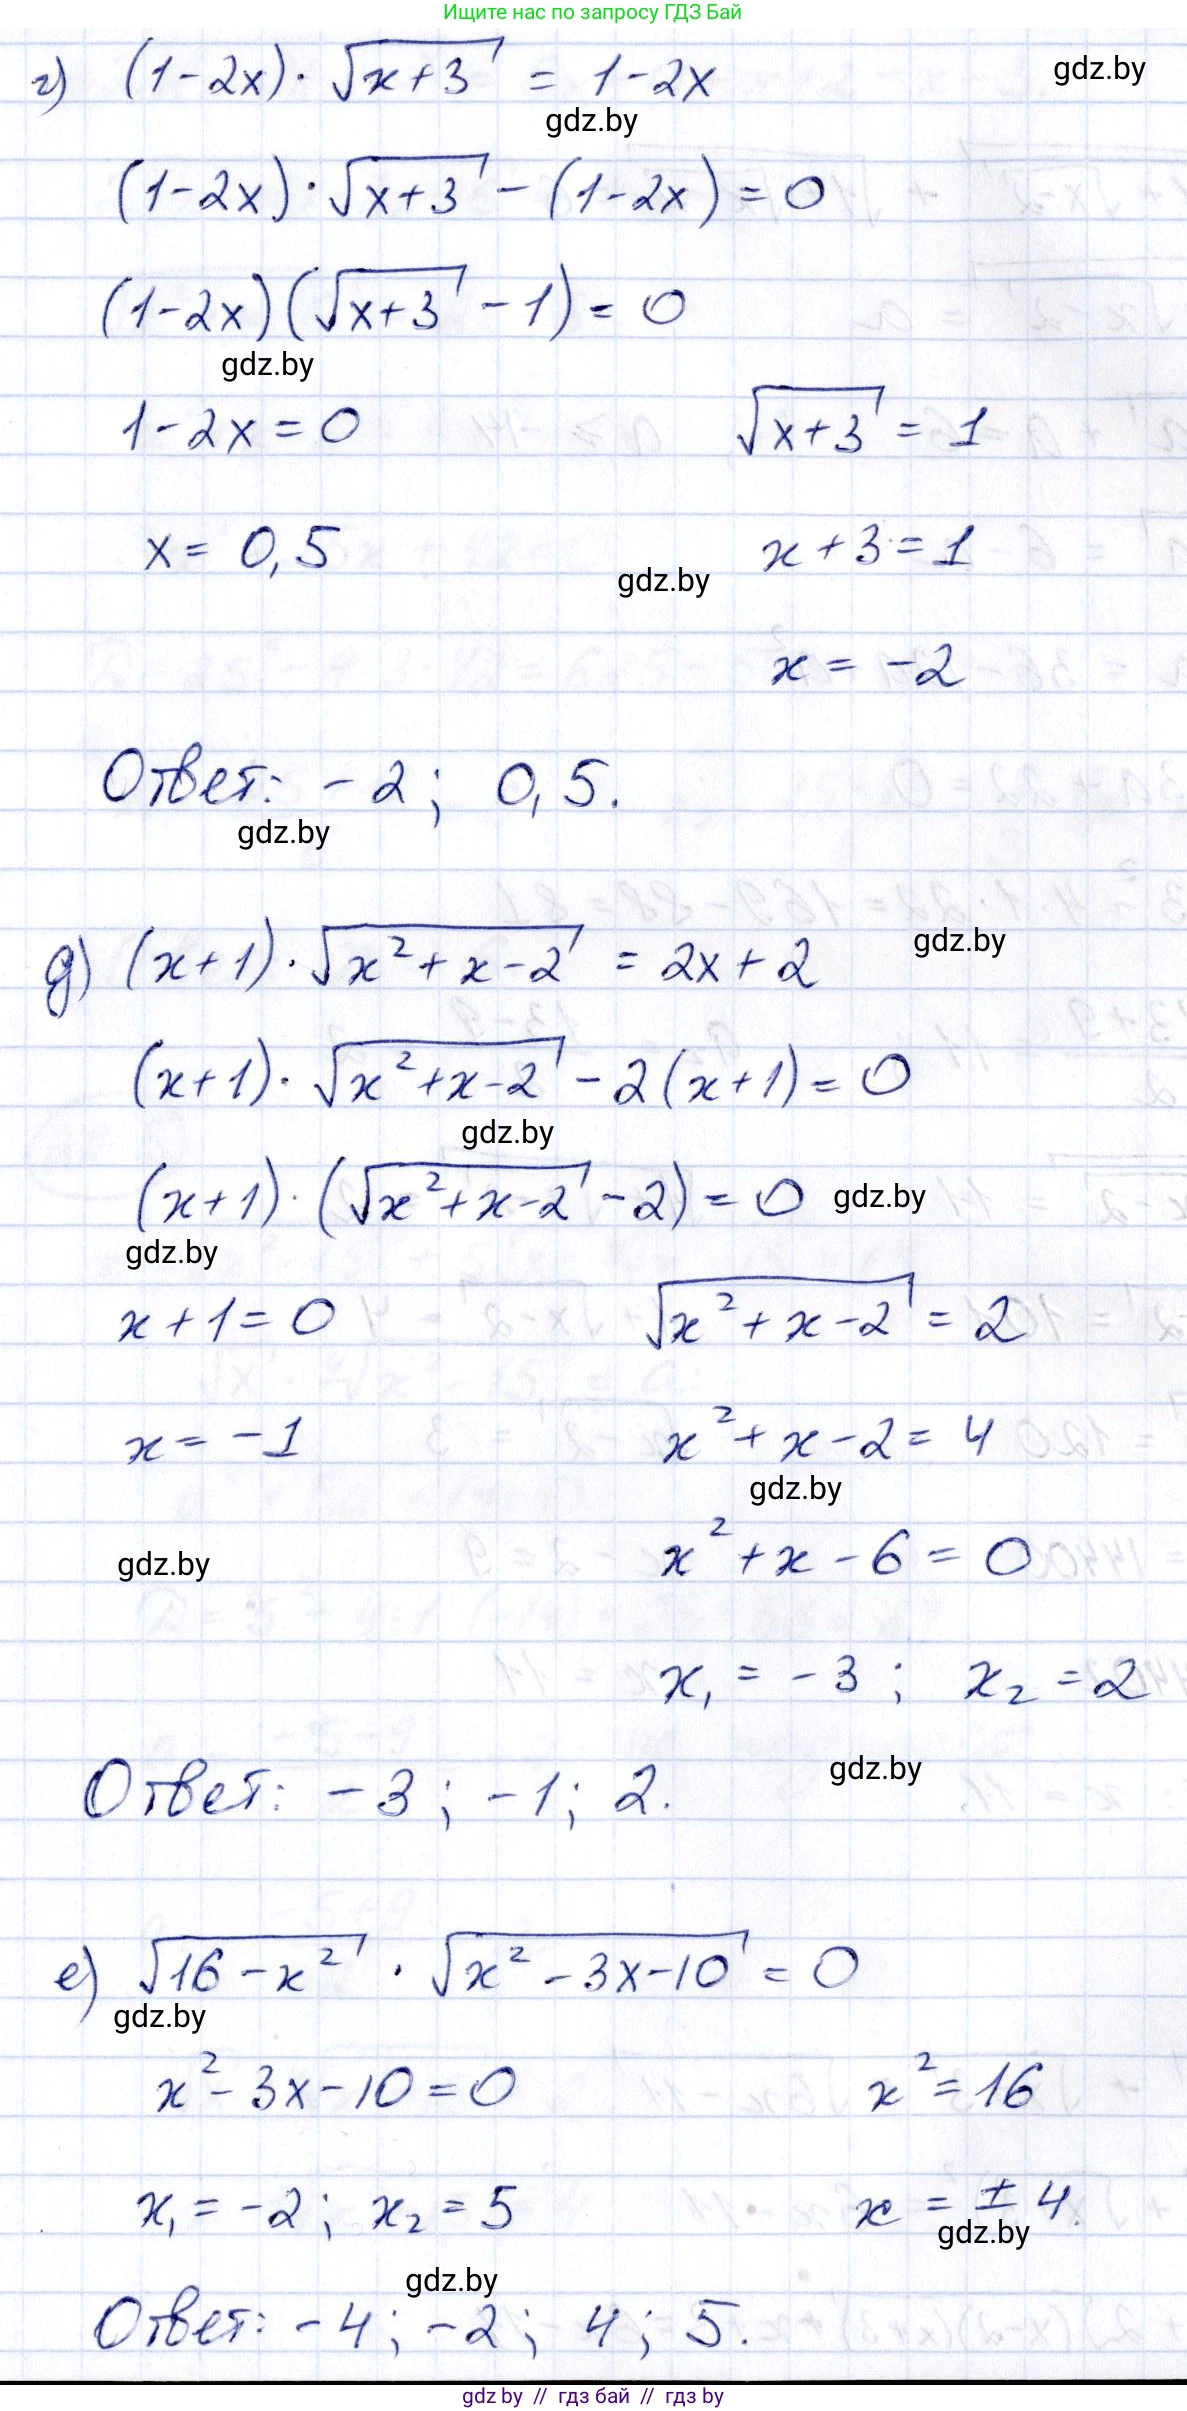 Ищите нас по запросу ГДЗ Бай
г) (1-2x)·√(x+3) = 1-2x
gdz.by
gdz.by
(1-2x)·√(x+3) - (1-2x) = 0
(1-2x)(√(x+3) - 1) = 0
gdz.by
1-2x = 0 √(x+3) = 1
x = 0,5 x+3 = 1
gdz.by
x = -2
Ответ: -2; 0,5.
gdz.by
д) (x+1)·√(x²+x-2) = 2x+2
gdz.by
(x+1)·√(x²+x-2) - 2(x+1) = 0
gdz.by
(x+1)·(√(x²+x-2) - 2) = 0 gdz.by
gdz.by
x+1 = 0 √(x²+x-2) = 2
x = -1 x²+x-2 = 4
gdz.by
gdz.by x²+x-6 = 0
x₁ = -3; x₂ = 2
gdz.by
Ответ: -3; -1; 2.
е) √(16-x²) · √(x²-3x-10) = 0
gdz.by
x²-3x-10 = 0 x² = 16
x₁ = -2; x₂ = 5 x = ±4.
gdz.by
gdz.by
Ответ: -4; -2; 4; 5.
gdz by // гдз бай // гдз by